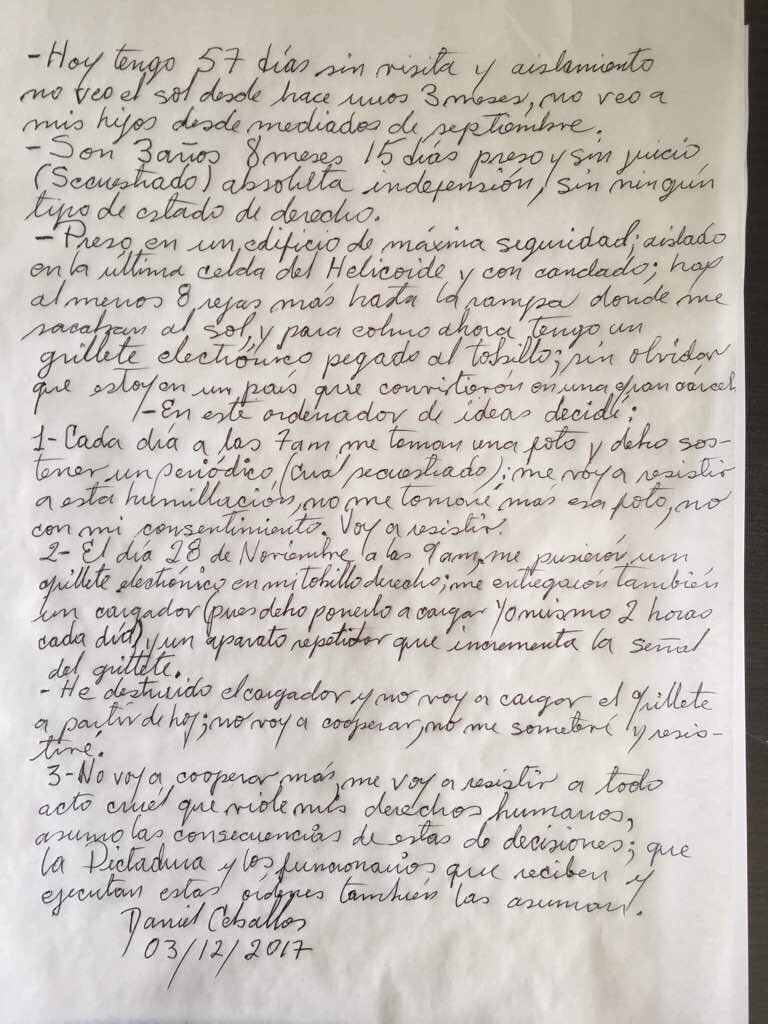 - Hoy tengo 57 días sin visita y aislamiento
no veo el sol desde hace unos 3 meses, no veo a
mis hijos desde mediados de septiembre.
- Son 3 años 8 meses 15 días preso y sin juicio
(Secuestrado) absoluta indefensión, sin ningún
tipo de estado de derecho.
- Preso en un edificio de máxima seguridad; aislado
en la última celda del Helicoide y con candado; hay
al menos 8 rejas más hasta la rampa donde me
sacaban al sol, y para colmo ahora tengo un
grillete electrónico pegado al tobillo; sin olvidar
que estoy en un país que convirtierón en una gran cárcel
- En este ordenador de ideas decidí:
1- Cada día a las 7am me toman una foto y debo sos-
tener un periódico, (cual secuestrado); me voy a resistir
a esta humillación, no me tomaré más esa foto, no
con mi consentimiento. Voy a resistir.
2- El día 28 de Noviembre a las 9am, me pusierón un
grillete electrónico en mi tobillo derecho; me entregarón también
un cargador (pues debo ponerlo a cargar yo mismo 2 horas
cada día) y un aparato repetidor que incrementa la señal
del grillete.
- He destruido el cargador y no voy a cargar el grillete
a partir de hoy; no voy a cooperar, no me someteré y resis-
tiré.
3- No voy a cooperar más, me voy a resistir a todo
acto cruél que viole mis derechos humanos,
asumo las consecuencias de estas de decisiones; que
la Dictadura y los funcionarios que reciben y
ejecutan estas órdenes también las asuman.
Daniel Ceballos
03/12/2017